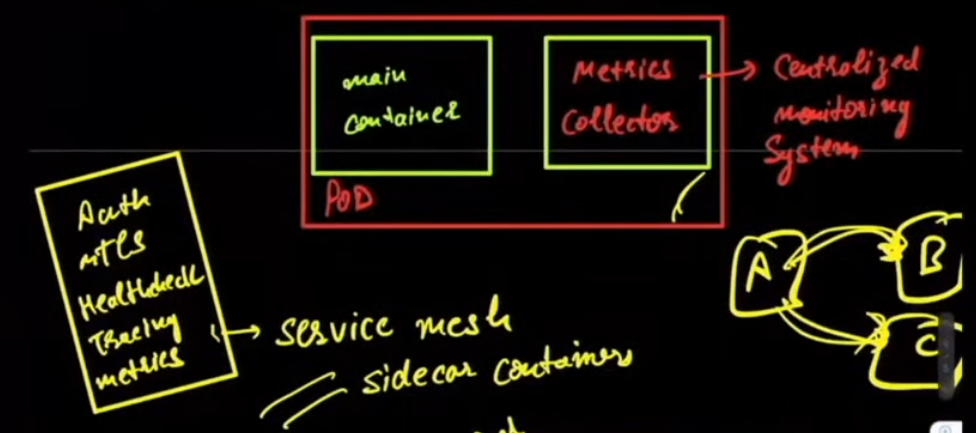 main
container
Metrics
Collector
Centralized
monitoring
System
POD
Auth
mTLS
Healthcheck
Tracing
metrics
service mesh
sidecar containers
A
B
C